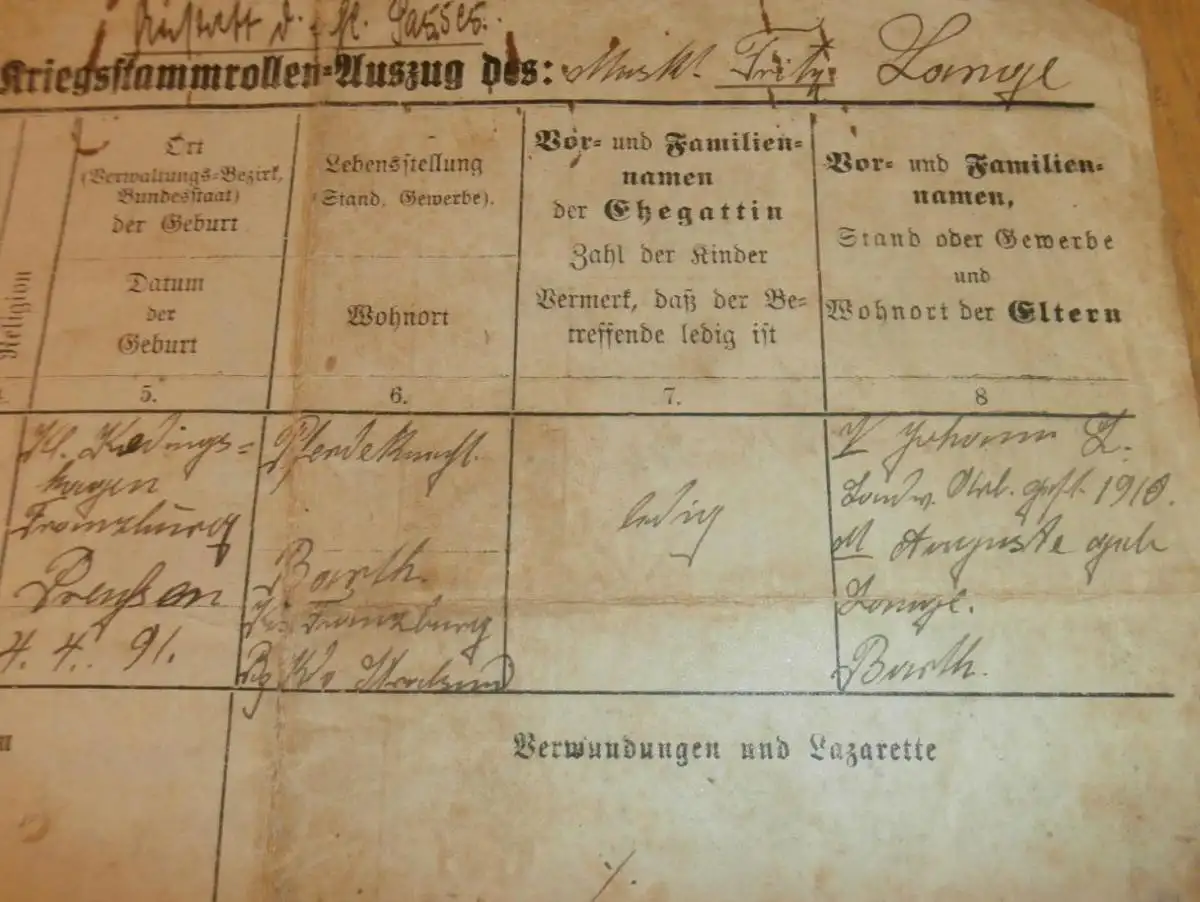 Anstatt d. Passes.
Kriegsstammrollen-Auszug des: Musk. Fritz Lange
Religion
Ort
(Verwaltungs-Bezirk,
Bundesstaat)
der Geburt
Datum
der
Geburt
Lebensstellung
(Stand, Gewerbe).
Wohnort
Vor- und Familien-
namen
der Ehegattin
Zahl der Kinder
Vermerk, daß der Be-
treffende ledig ist
Vor- und Familien-
namen,
Stand oder Gewerbe
und
Wohnort der Eltern
5.
6.
7.
8
Kl. Kedings-
hagen
Franzburg
Preußen
4. 4. 91.
Pferdeknecht.
Barth.
Franzburg
Stralsund
ledig
V Johann L.
Landw. Arb. gest. 1910.
M Auguste geb
Lange.
Barth.
Verwundungen und Lazarette